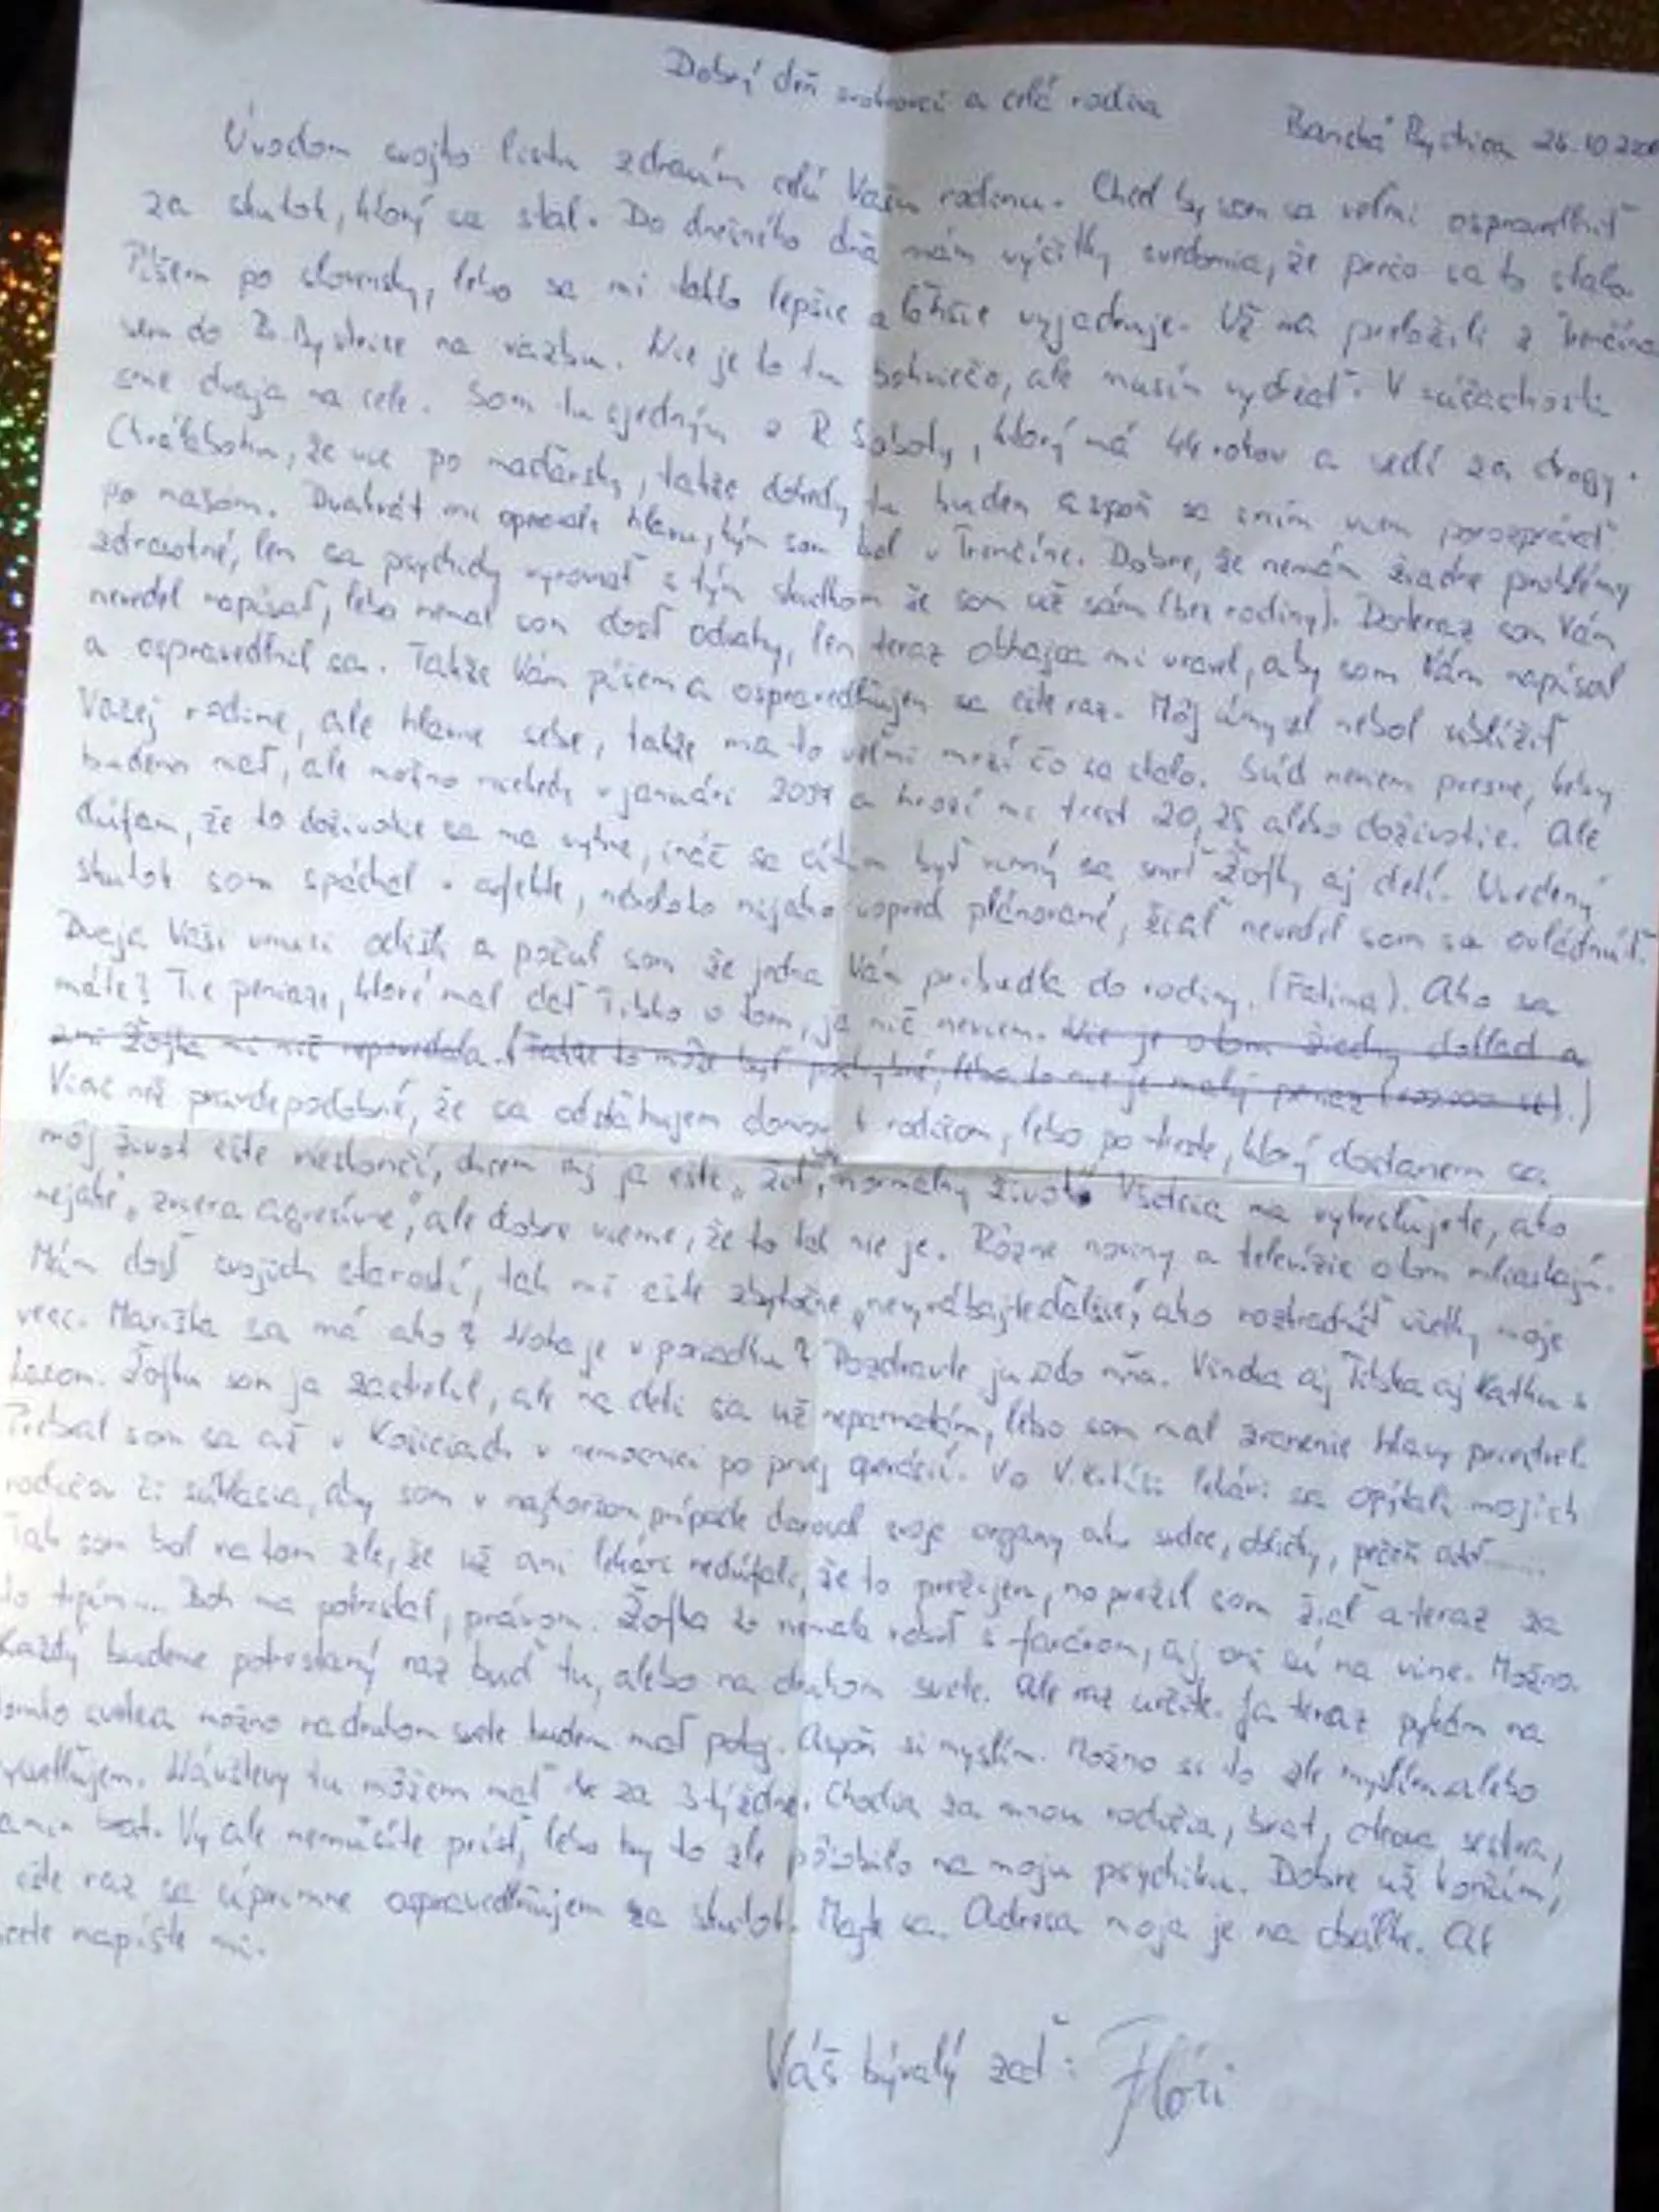 Dobrý deň svokrovci a celá rodina
Banská Bystrica 26.10.
Úvodom svojho listu zdravím celú Vašu rodinu. Chcel by som sa veľmi ospravedlniť
za skutok, ktorý sa stal. Do dnešného dňa mám výčitky svedomia, že prečo sa to stalo.
Píšem po slovensky, lebo sa mi takto lepšie a ľahšie vyjadruje. Už ma preložili z Trenčína
sem do B. Bystrice na väzbu. Nie je to tu bohviečo, ale musím vydržať. V súčasnosti
sme dvaja na cele. Som tu s jedným z R. Soboty, ktorý má 44 rokov a sedí za drogy.
Chválabohu, že vie po maďarsky, takže dokedy tu budem aspoň sa s ním viem porozprávať
po našom. Dvakrát mi operovali hlavu, kým som bol v Trenčíne. Dobre, že nemám žiadne problémy
zdravotné, len sa psychicky vyrovnať s tým skutkom že som už sám (bez rodiny). Doteraz som Vám
nevedel napísať, lebo nemal som dosť odvahy, len teraz obhajca mi vravel, aby som Vám napísal
a ospravedlnil sa. Takže Vám píšem a ospravedlňujem sa ešte raz. Môj úmysel nebol ublížiť
Vašej rodine, ale hlavne sebe, takže ma to veľmi mrzí čo sa stalo. Súd neviem presne, kedy
budem mať, ale možno niekedy v januári a hrozí mi trest 20, 25 alebo doživotie. Ale
dúfam, že to doživotie sa ma vyhne, ináč sa cítim byť vinný za smrť Žofky aj detí. Uvedený
skutok som spáchal v afekte, nebolo to nijako vopred plánované, žiaľ nevedel som sa ovládnuť.
Dvaja Vaši vnuci odišli a počul som že jedna Vám pribudla do rodiny. (Fatima). Ako sa
máte? Tie peniaze, ktoré mal dať Tibko o tom, ja nič neviem. Nie je o tom žiadny doklad a
ani Žofka mi nič nepovedala. (Takže to môže byť pochybné, lebo to nie je malý peniaz
Viac než pravdepodobné, že sa odsťahujem domov k rodičom, lebo po treste, ktorý dostanem sa
môj život ešte neskončí, chcem aj ja ešte "žiť", normálny život. Všetcia ma vykresľujete, ako
nejaké "zviera agresívne", ale dobre vieme, že to tak nie je. Rôzne noviny a televízie o tom
Mám dosť svojich starostí, tak mi ešte zbytočne "nevyrábajte ďalšie", ako rozkradnúť všetky moje
veci. Mariška sa má ako? Noha je v poriadku? Pozdravte ju odo mňa. Vincka aj Tibska aj Katku s
Lacom. Žofku som ja zastrelil, ale na deti sa už nepamätám, lebo som mal zranenie hlavy priestrel.
Prebral som sa až v Košiciach v nemocnici po prvej operácii. Vo V. Krtíši lekári sa opýtali mojich
rodičov či súhlasia, aby som v najhoršom prípade daroval svoje organy ako srdce, obličky, pečeň atď......
Tak som bol na tom zle, že už ani lekári nedúfali, že to prežijem, no prežil som žiaľ a teraz za
to trpím... Boh ma potrestal, právom. Žofka to nemala robiť s farárom, aj oni sú na vine. Možno.
Každý budeme potrestaný raz buď tu, alebo na druhom svete. Ale raz určite. Ja teraz pykám na
tomto svete a možno na druhom svete budem mať pokoj. Aspoň si myslím. Možno si to zle myslím alebo
vysvetľujem. Návštevy tu môžem mať len za 3 týždne. Chodia za mnou rodičia, brat, otcova sestra,
brat. Vy ale nemusíte prísť, lebo by to zle pôsobilo na moju psychiku. Dobre už končím,
ešte raz sa úprimne ospravedlňujem za skutok. Majte sa. Adresa moja je na obálke. Ak
chcete napíšte mi.
Váš bývalý zať: Flóri